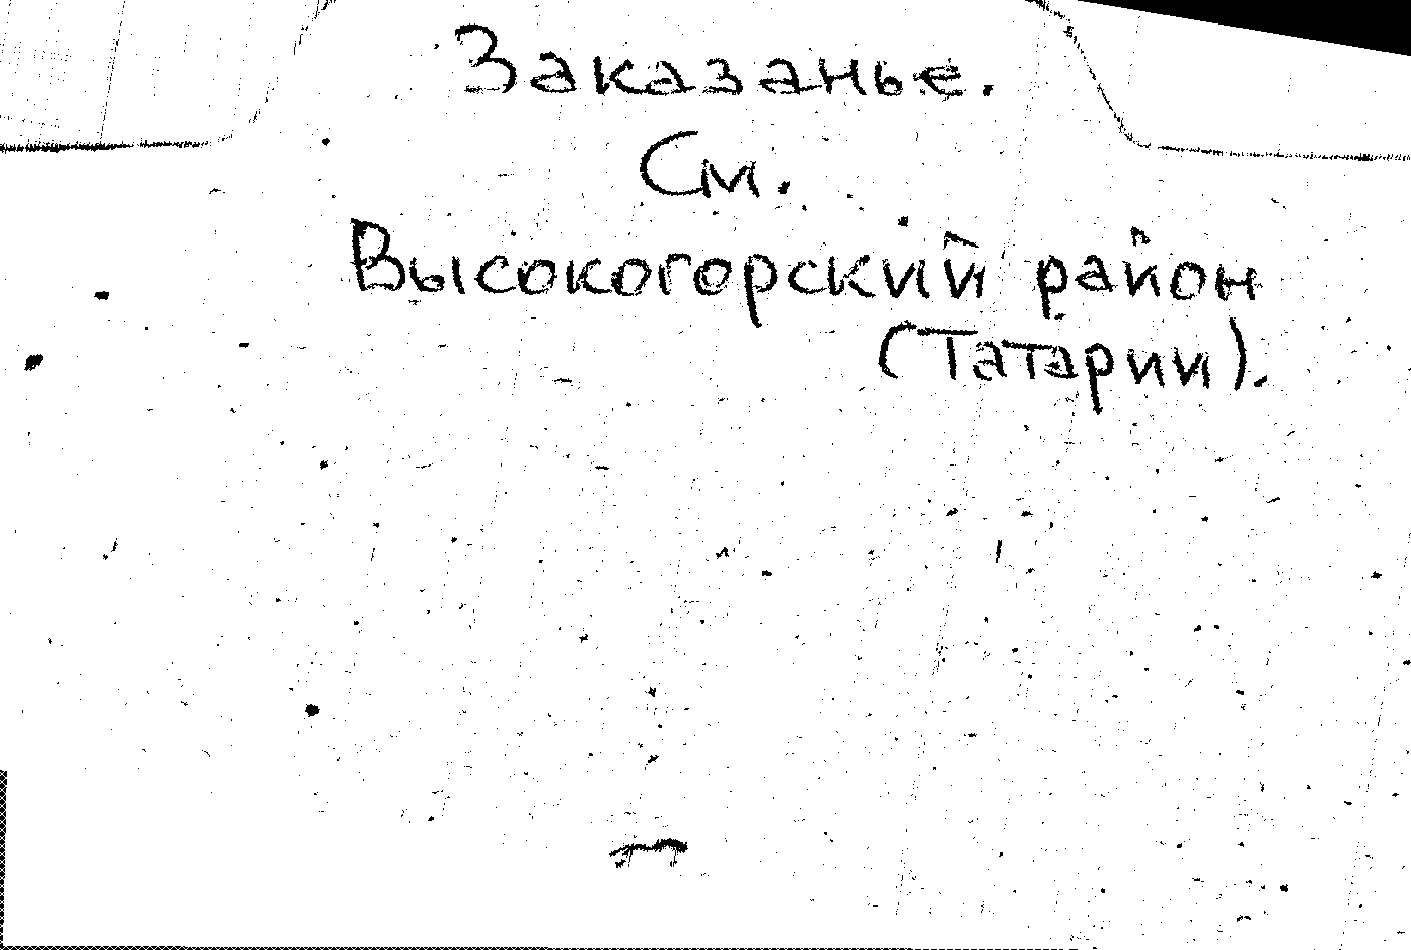 Заказанье.
См.
Высокогорский район
(Татарии).